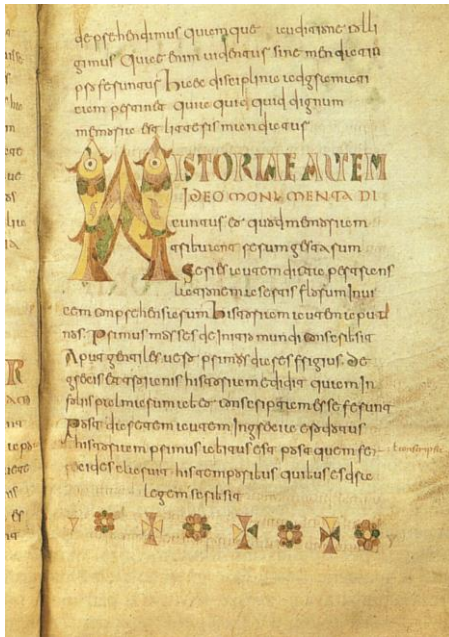 deprehendimus quam que auditione colli
gimus Quae enim videntur sine mendacio
proferuntur haec disciplina ad
cam pertinet quia quid quid dignum
memoria est litteris mandatur
HISTORIAE AUTEM
IDEO MONUMENTA DI
cuntur eo quod memoriam
tribuant rerum gestarum
Series autem dicta per trans
lationem a sertis florum Invi
cem conprehensarum historiam autem aput
nos Primus moses de initio mundi conscribsit
Aput gentiles vero primus dares frigius de
grecis et troianis historiam edidit quam In
foliis palmarum ab eo conscriptam esse ferunt
Post daretem autem In grecia erodotus
historiam primus habitus est post quem fe
recides claruit his temporibus quibus esdras
legem scribsit